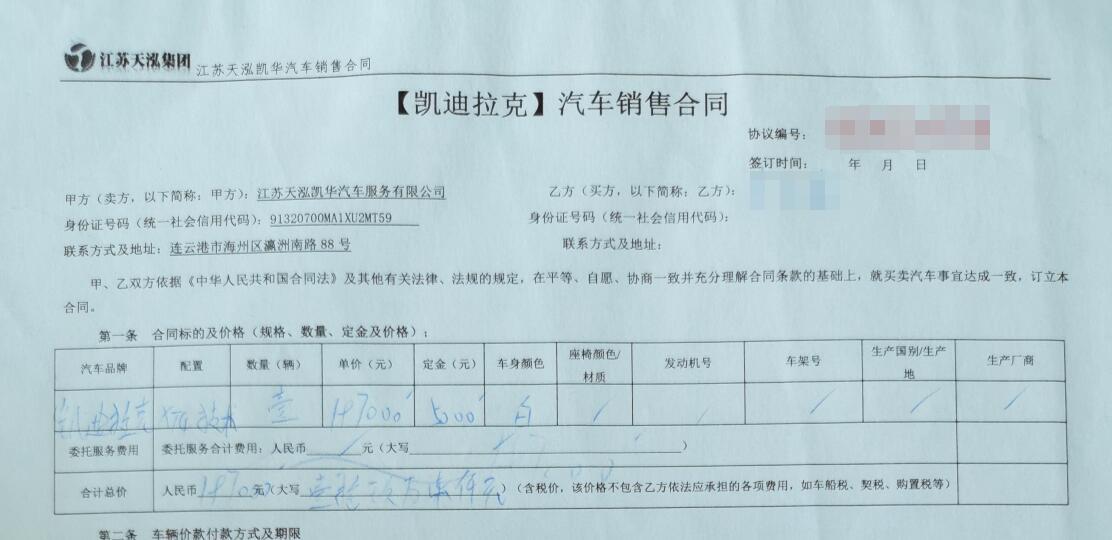 江苏天泓集团 江苏天泓凯华汽车销售合同
【凯迪拉克】汽车销售合同
协议编号：
签订时间： 年 月 日
甲方（卖方，以下简称：甲方）：江苏天泓凯华汽车服务有限公司 乙方（买方，以下简称：乙方）：
身份证号码（统一社会信用代码）：91320700MA1XU2MT59 身份证号码（统一社会信用代码）：
联系方式及地址：连云港市海州区瀛洲南路 88 号 联系方式及地址：
甲、乙双方依据《中华人民共和国合同法》及其他有关法律、法规的规定，在平等、自愿、协商一致并充分理解合同条款的基础上，就买卖汽车事宜达成一致，订立本
合同。
第一条 合同标的及价格（规格、数量、定金及价格）；
汽车品牌 配置 数量（辆） 单价（元） 定金（元） 车身颜色 座椅颜色/材质 发动机号 车架号 生产国别/生产地 生产厂商
凯迪拉克 技术 壹 147000 5000 白 / / / / /
委托服务费用 委托服务合计费用：人民币 / 元（大写 ）
合计总价 人民币 147000 元（大写 壹拾 万柒仟元 ）（含税价，该价格不包含乙方依法应承担的各项费用，如车船税、契税、购置税等）
第二条 车辆价款付款方式及期限